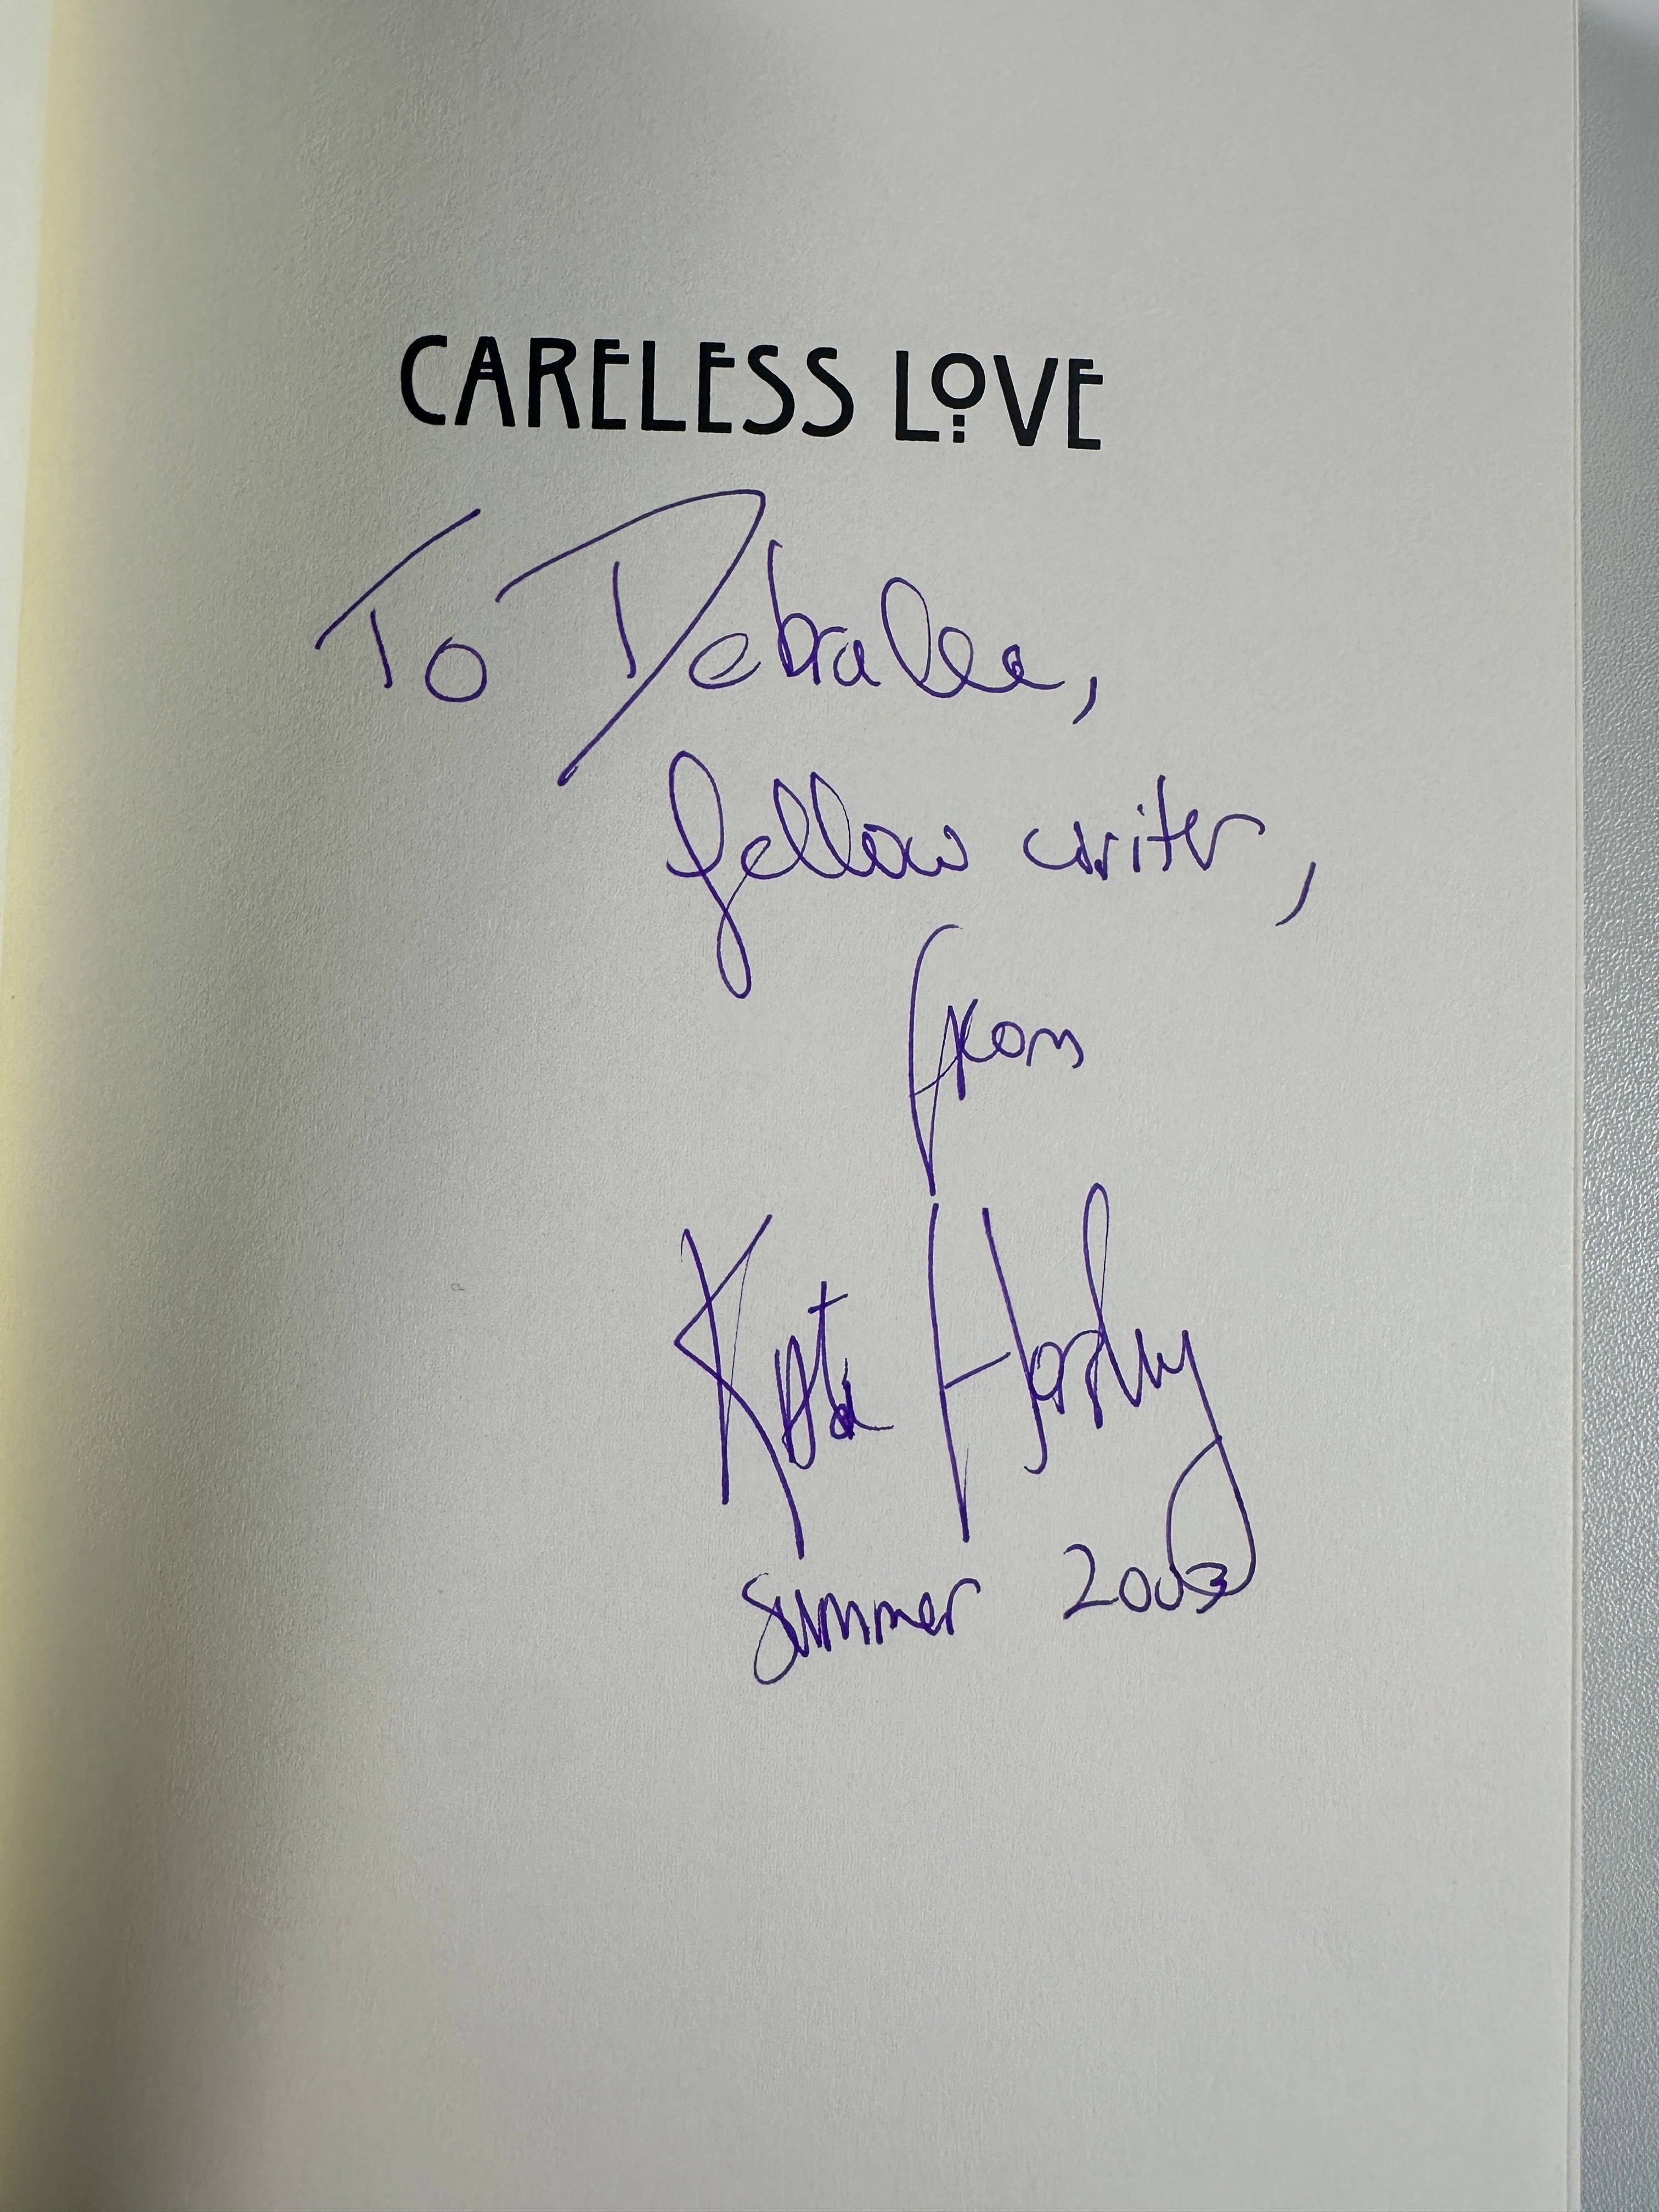 CARELESS LOVE
To Debralee,
fellow writer,
from
Kate Horsley
summer 2003